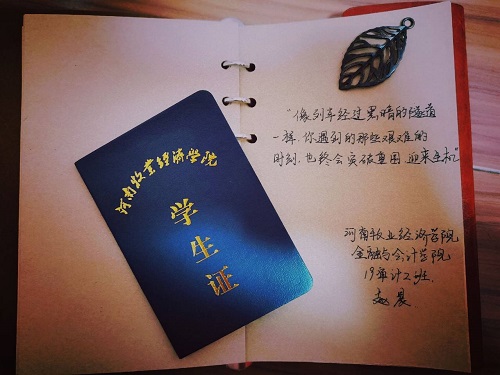 河南牧业经济学院
学生证
“像列车经过黑暗的隧道
一样，你遇到的那些艰难的
时刻，也终会突破重围，迎来生机”
河南牧业经济学院
金融与会计学院
19审计2班
赵晨